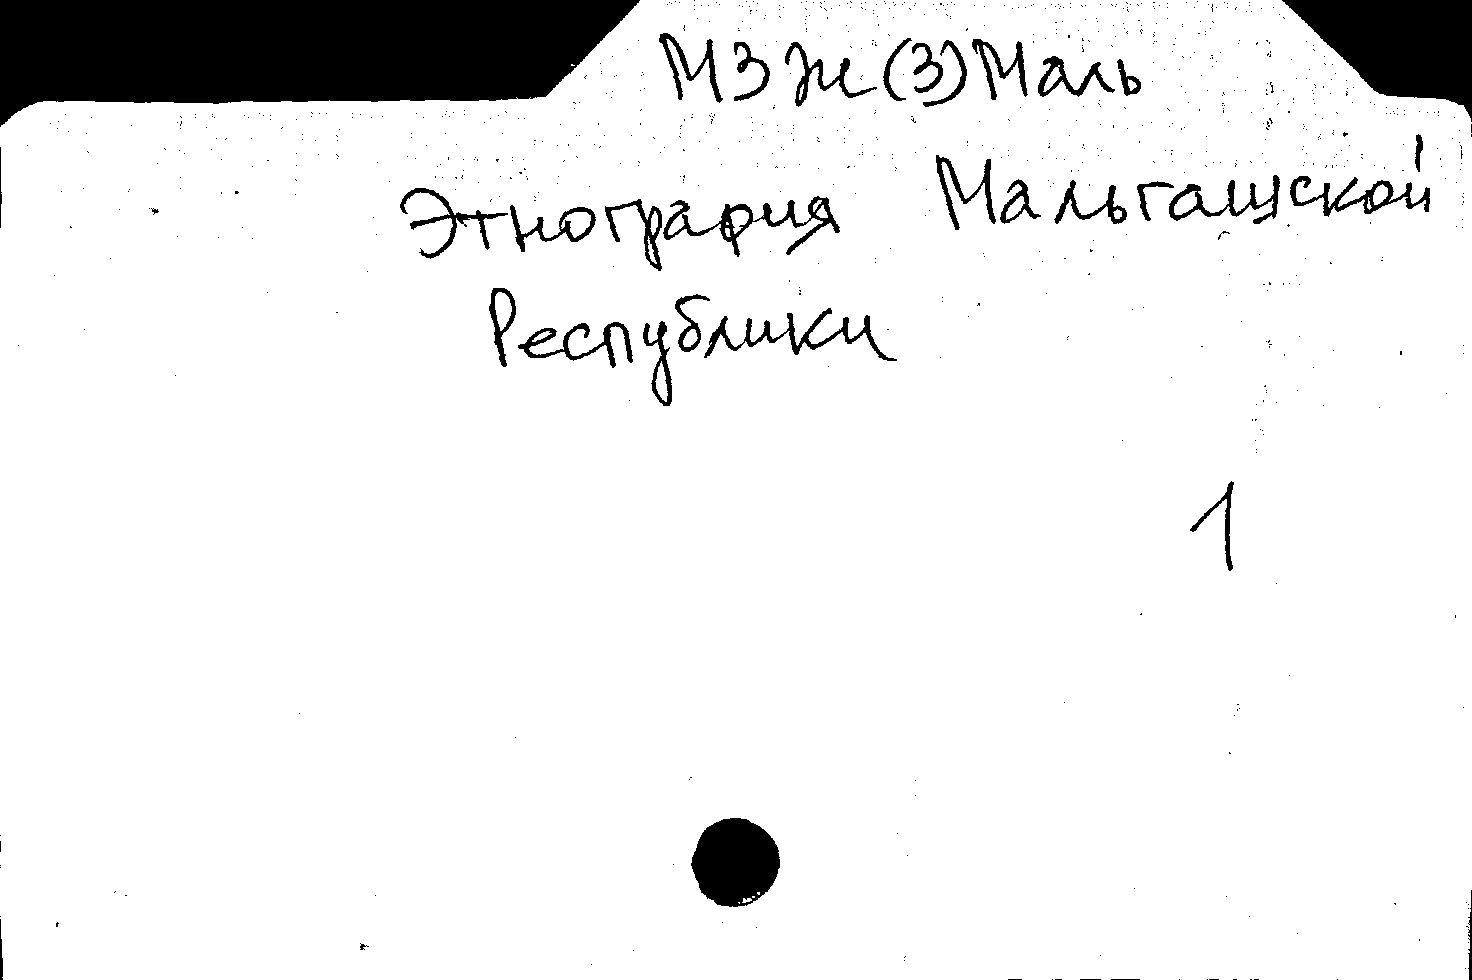 МЗЖ(3)Маль
Этнография Мальгашской
Республики
1